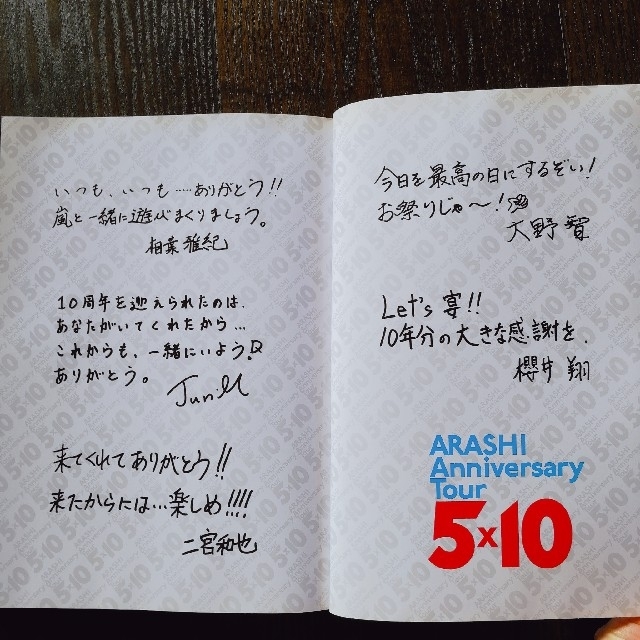 いつも、いつも……ありがとう!!
嵐と一緒に遊びまくりましょう。
相葉雅紀
10周年を迎えられたのは、
あなたがいてくれたから…
これからも、一緒にいよう。
ありがとう。
Jun.M
来てくれてありがとう!!
来たからには…楽しめ!!!!
二宮和也
今日を最高の日にするぞい!
お祭りじゃ〜!
大野智
Let's 宴!!
10年分の大きな感謝を.
櫻井翔
ARASHI
Anniversary
Tour
5×10